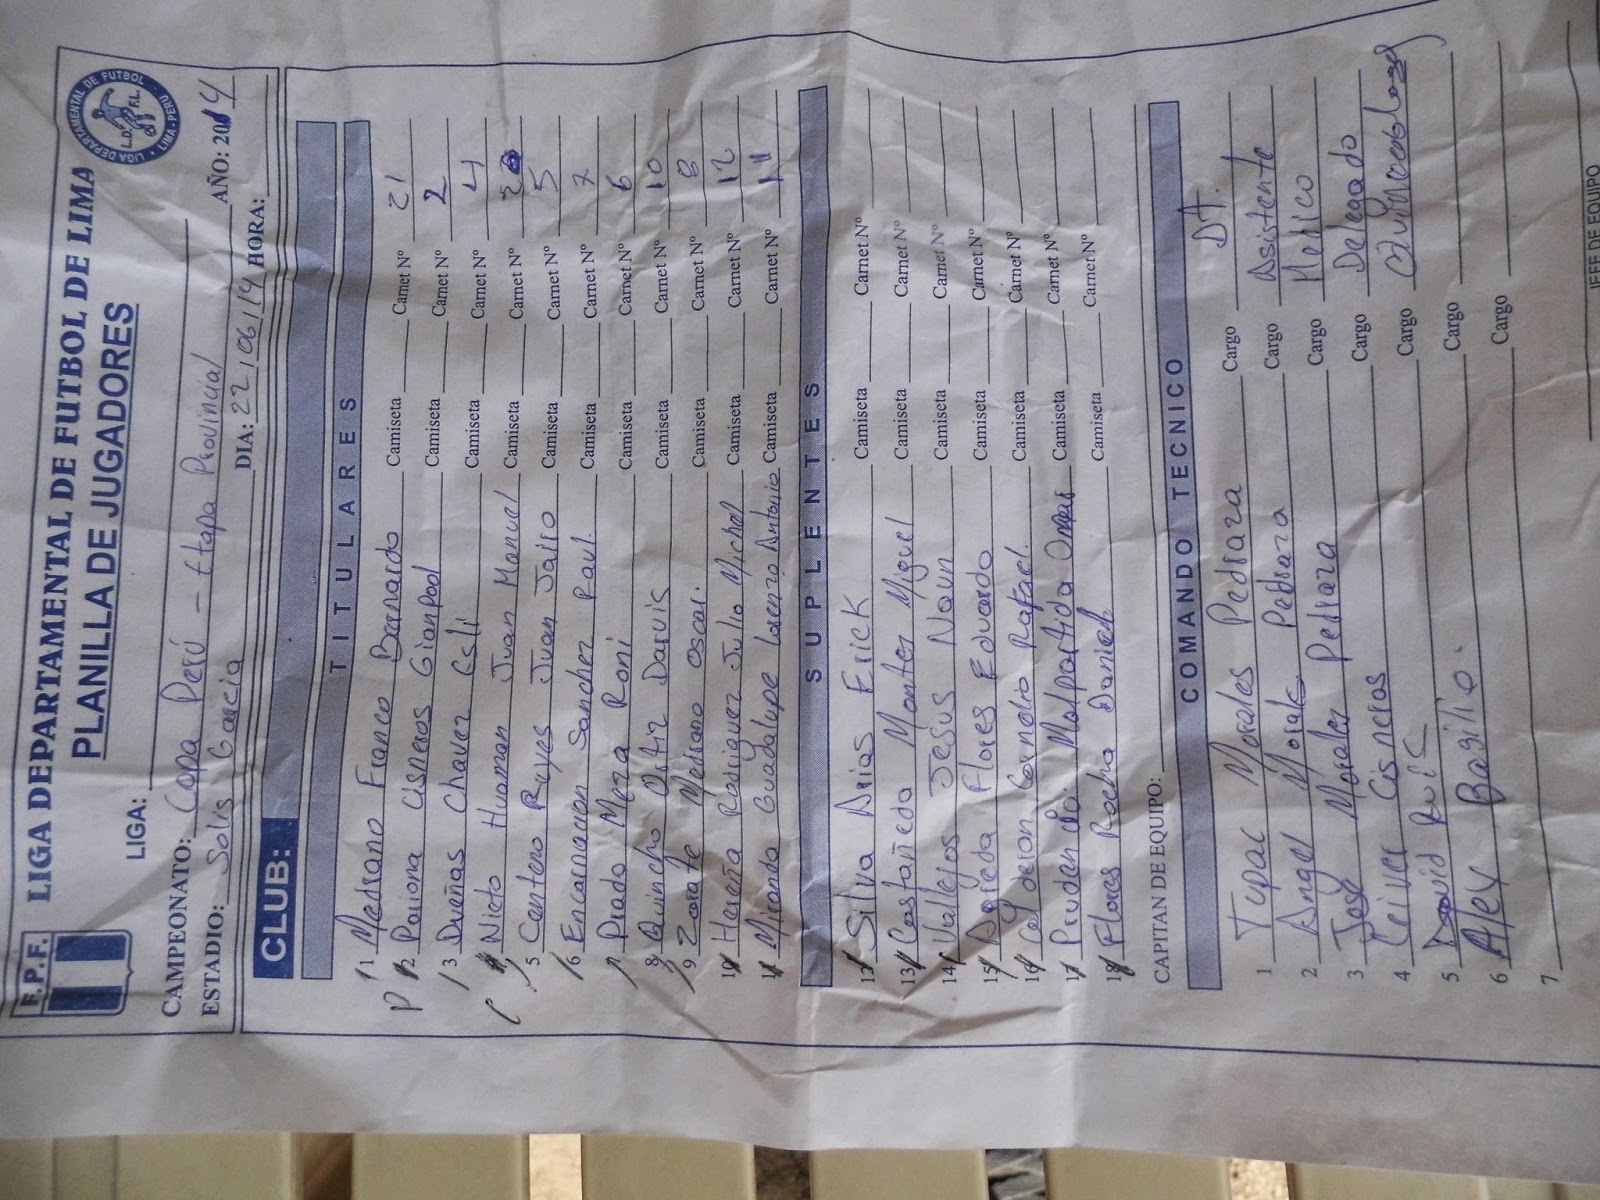 F.P.F.
LIGA DEPARTAMENTAL DE FUTBOL DE LIMA
PLANILLA DE JUGADORES
LIGA DEPARTAMENTAL DE FUTBOL
L.D. F.L.
LIMA - PERU
LIGA:
CAMPEONATO: Copa Perú - etapa Provincial AÑO: 2014
ESTADIO: Solis Garcia DIA: 22/06/14 HORA:
CLUB:
TITULARES
1 Medrano Franco Bernardo Camiseta Carnet Nº 21
2 Paiona Cisneros Gianpool Camiseta Carnet Nº 2
3 Dueñas Chavez Esli Camiseta Carnet Nº 4
4 Nieto Huaman Juan Manuel Camiseta Carnet Nº
5 Centeno Reyes Juan Jairo Camiseta Carnet Nº 5
6 Encarnacion Sanchez Paul. Camiseta Carnet Nº 7
7 Prado Meza Roni Camiseta Carnet Nº 6
8 Quincho Ortiz Darvis Camiseta Carnet Nº 10
9 Zarate Medrano Oscar. Camiseta Carnet Nº 8
10 Hereña Rodriguez Julio Michel Camiseta Carnet Nº 12
11 Miranda Guadalupe Lorenzo Antonio Camiseta Carnet Nº 11
SUPLENTES
12 Silva Arias Erick Camiseta Carnet Nº
13 Castañeda Montes Miguel Camiseta Carnet Nº
14 Vallejos Jesus Naun Camiseta Carnet Nº
15 Flores Eduardo Camiseta Carnet Nº
16 Calderon Cornelio Rafael. Camiseta Carnet Nº
17 Prudencio Malpartida Omar Camiseta Carnet Nº
18 Flores Rocha Daniel Camiseta Carnet Nº
CAPITAN DE EQUIPO:
COMANDO TECNICO
1 Tupac Morales Pedraza Cargo DT.
2 Angel Morales Pedraza Cargo Asistente
3 Jose Morales Pedraza Cargo Medico
4 Ceiver Cisneros Cargo Delegado
5 David Ruis Cargo
6 Alex Basilio. Cargo
7 Cargo
JEFE DE EQUIPO